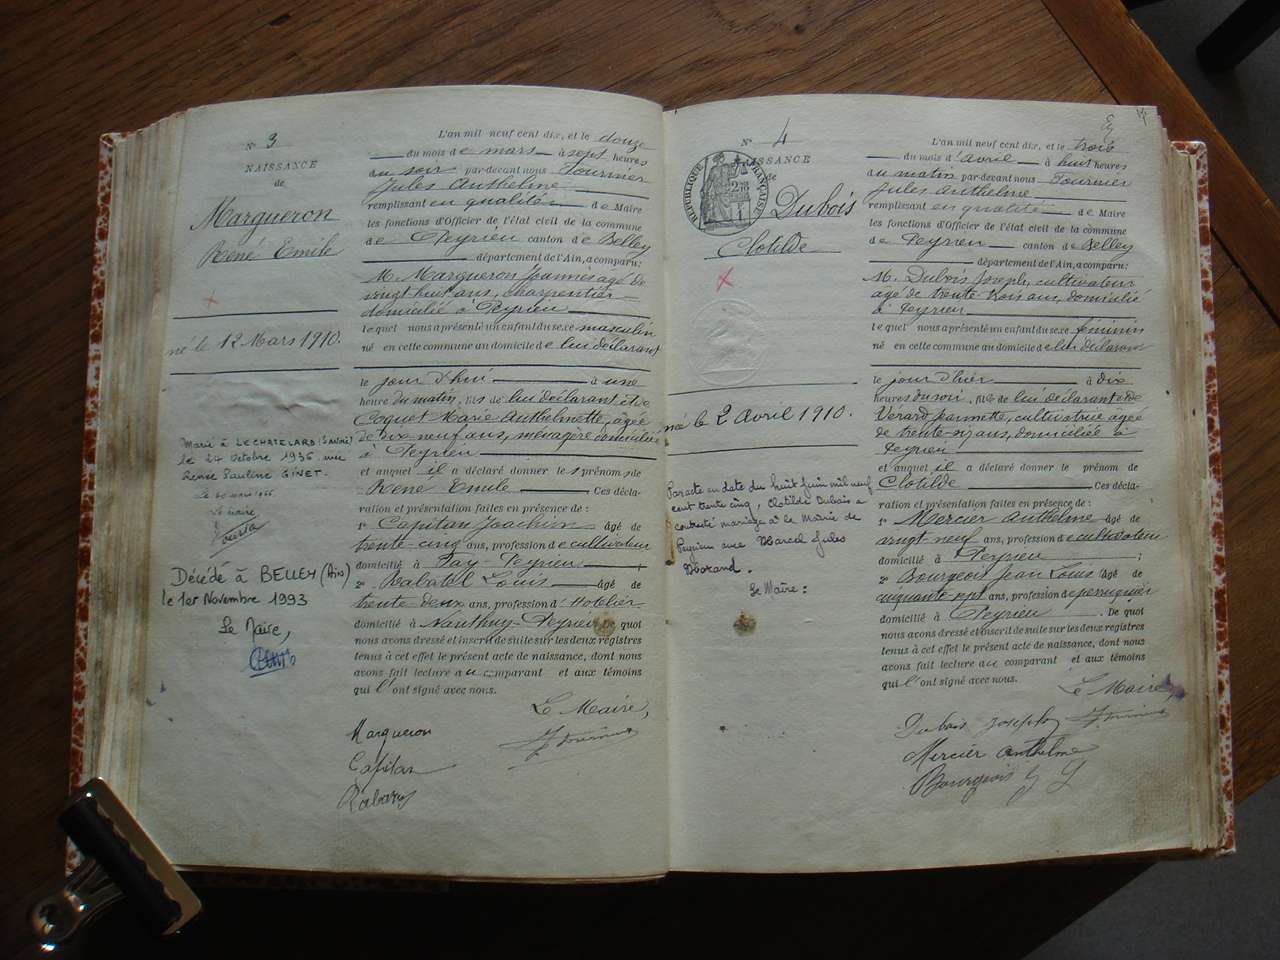 N° 3
NAISSANCE
de
Margueron
René Emile
né le 12 Mars 1910.
Marié à LE CHATELARD (SAVOIE)
le 24 Octobre 1936 avec
Renée Pauline GINET.
Le maire
Décédé à BELLEY (Ain)
le 1er Novembre 1993
Le Maire,
L'an mil neuf cent dix, et le douze
du mois de mars à sept heures
du soir par-devant nous Fournier
Jules Anthelme
remplissant en qualité de Maire
les fonctions d'Officier de l'état civil de la commune
de Peyrieu canton de Belley
département de l'Ain, a comparu:
M. Margueron Joannès âgé de
vingt huit ans, charpentier
domicilié à Peyrieu
lequel nous a présenté un enfant du sexe masculin
né en cette commune au domicile de lui déclarant
le jour d'hui à une
heure du matin, fils de lui déclarant et de
Coquet Marie Anthelmette, âgée
de dix-neuf ans, ménagère domiciliée
à Peyrieu
et auquel il a déclaré donner les prénoms de
René Emile Ces décla-
ration et présentation faites en présence de:
1° Capitan Joachim âgé de
trente-cinq ans, profession de cultivateur
domicilié à Fay-Peyrieu;
2° Rabatel Louis âgé de
trente-deux ans, profession d'Hotelier
domicilié à Nanthuy-Peyrieu De quoi
nous avons dressé et inscrit de suite sur les deux registres
tenus à cet effet le présent acte de naissance, dont nous
avons fait lecture au comparant et aux témoins
qui l'ont signé avec nous.
Le Maire,
Margueron
Capitan
N° 4
NAISSANCE
de
RÉPUBLIQUE FRANÇAISE
Dubois
Clotilde
née le 2 Avril 1910.
Par acte en date du huit juin mil neuf
cent trente cinq, Clotilde Dubois a
contracté mariage à la Mairie de
Peyrieu avec Marcel Jules
Morand.
Le Maire:
L'an mil neuf cent dix, et le trois
du mois d'avril à huit heures
du matin par-devant nous Fournier
Jules Anthelme
remplissant en qualité de Maire
les fonctions d'Officier de l'état civil de la commune
de Peyrieu canton de Belley
département de l'Ain, a comparu:
M. Dubois Joseph, cultivateur
âgé de trente trois ans, domicilié
à Peyrieu
lequel nous a présenté un enfant du sexe féminin
né en cette commune au domicile de lui déclarant
le jour d'hier à dix
heures du soir, fille de lui déclarant et de
Verard Jeannette, cultivatrice âgée
de trente-six ans, domiciliée à
Peyrieu
et auquel il a déclaré donner le prénom de
Clotilde Ces décla-
ration et présentation faites en présence de:
1° Mercier Anthelme âgé de
vingt-neuf ans, profession de cultivateur
domicilié à Peyrieu;
2° Bourgeois Jean Louis âgé de
cinquante sept ans, profession de perruquier
domicilié à Peyrieu. De quoi
nous avons dressé et inscrit de suite sur les deux registres
tenus à cet effet le présent acte de naissance, dont nous
avons fait lecture au comparant et aux témoins
qui l'ont signé avec nous.
Le Maire,
Dubois Joseph
Mercier Anthelme
Bourgeois J L